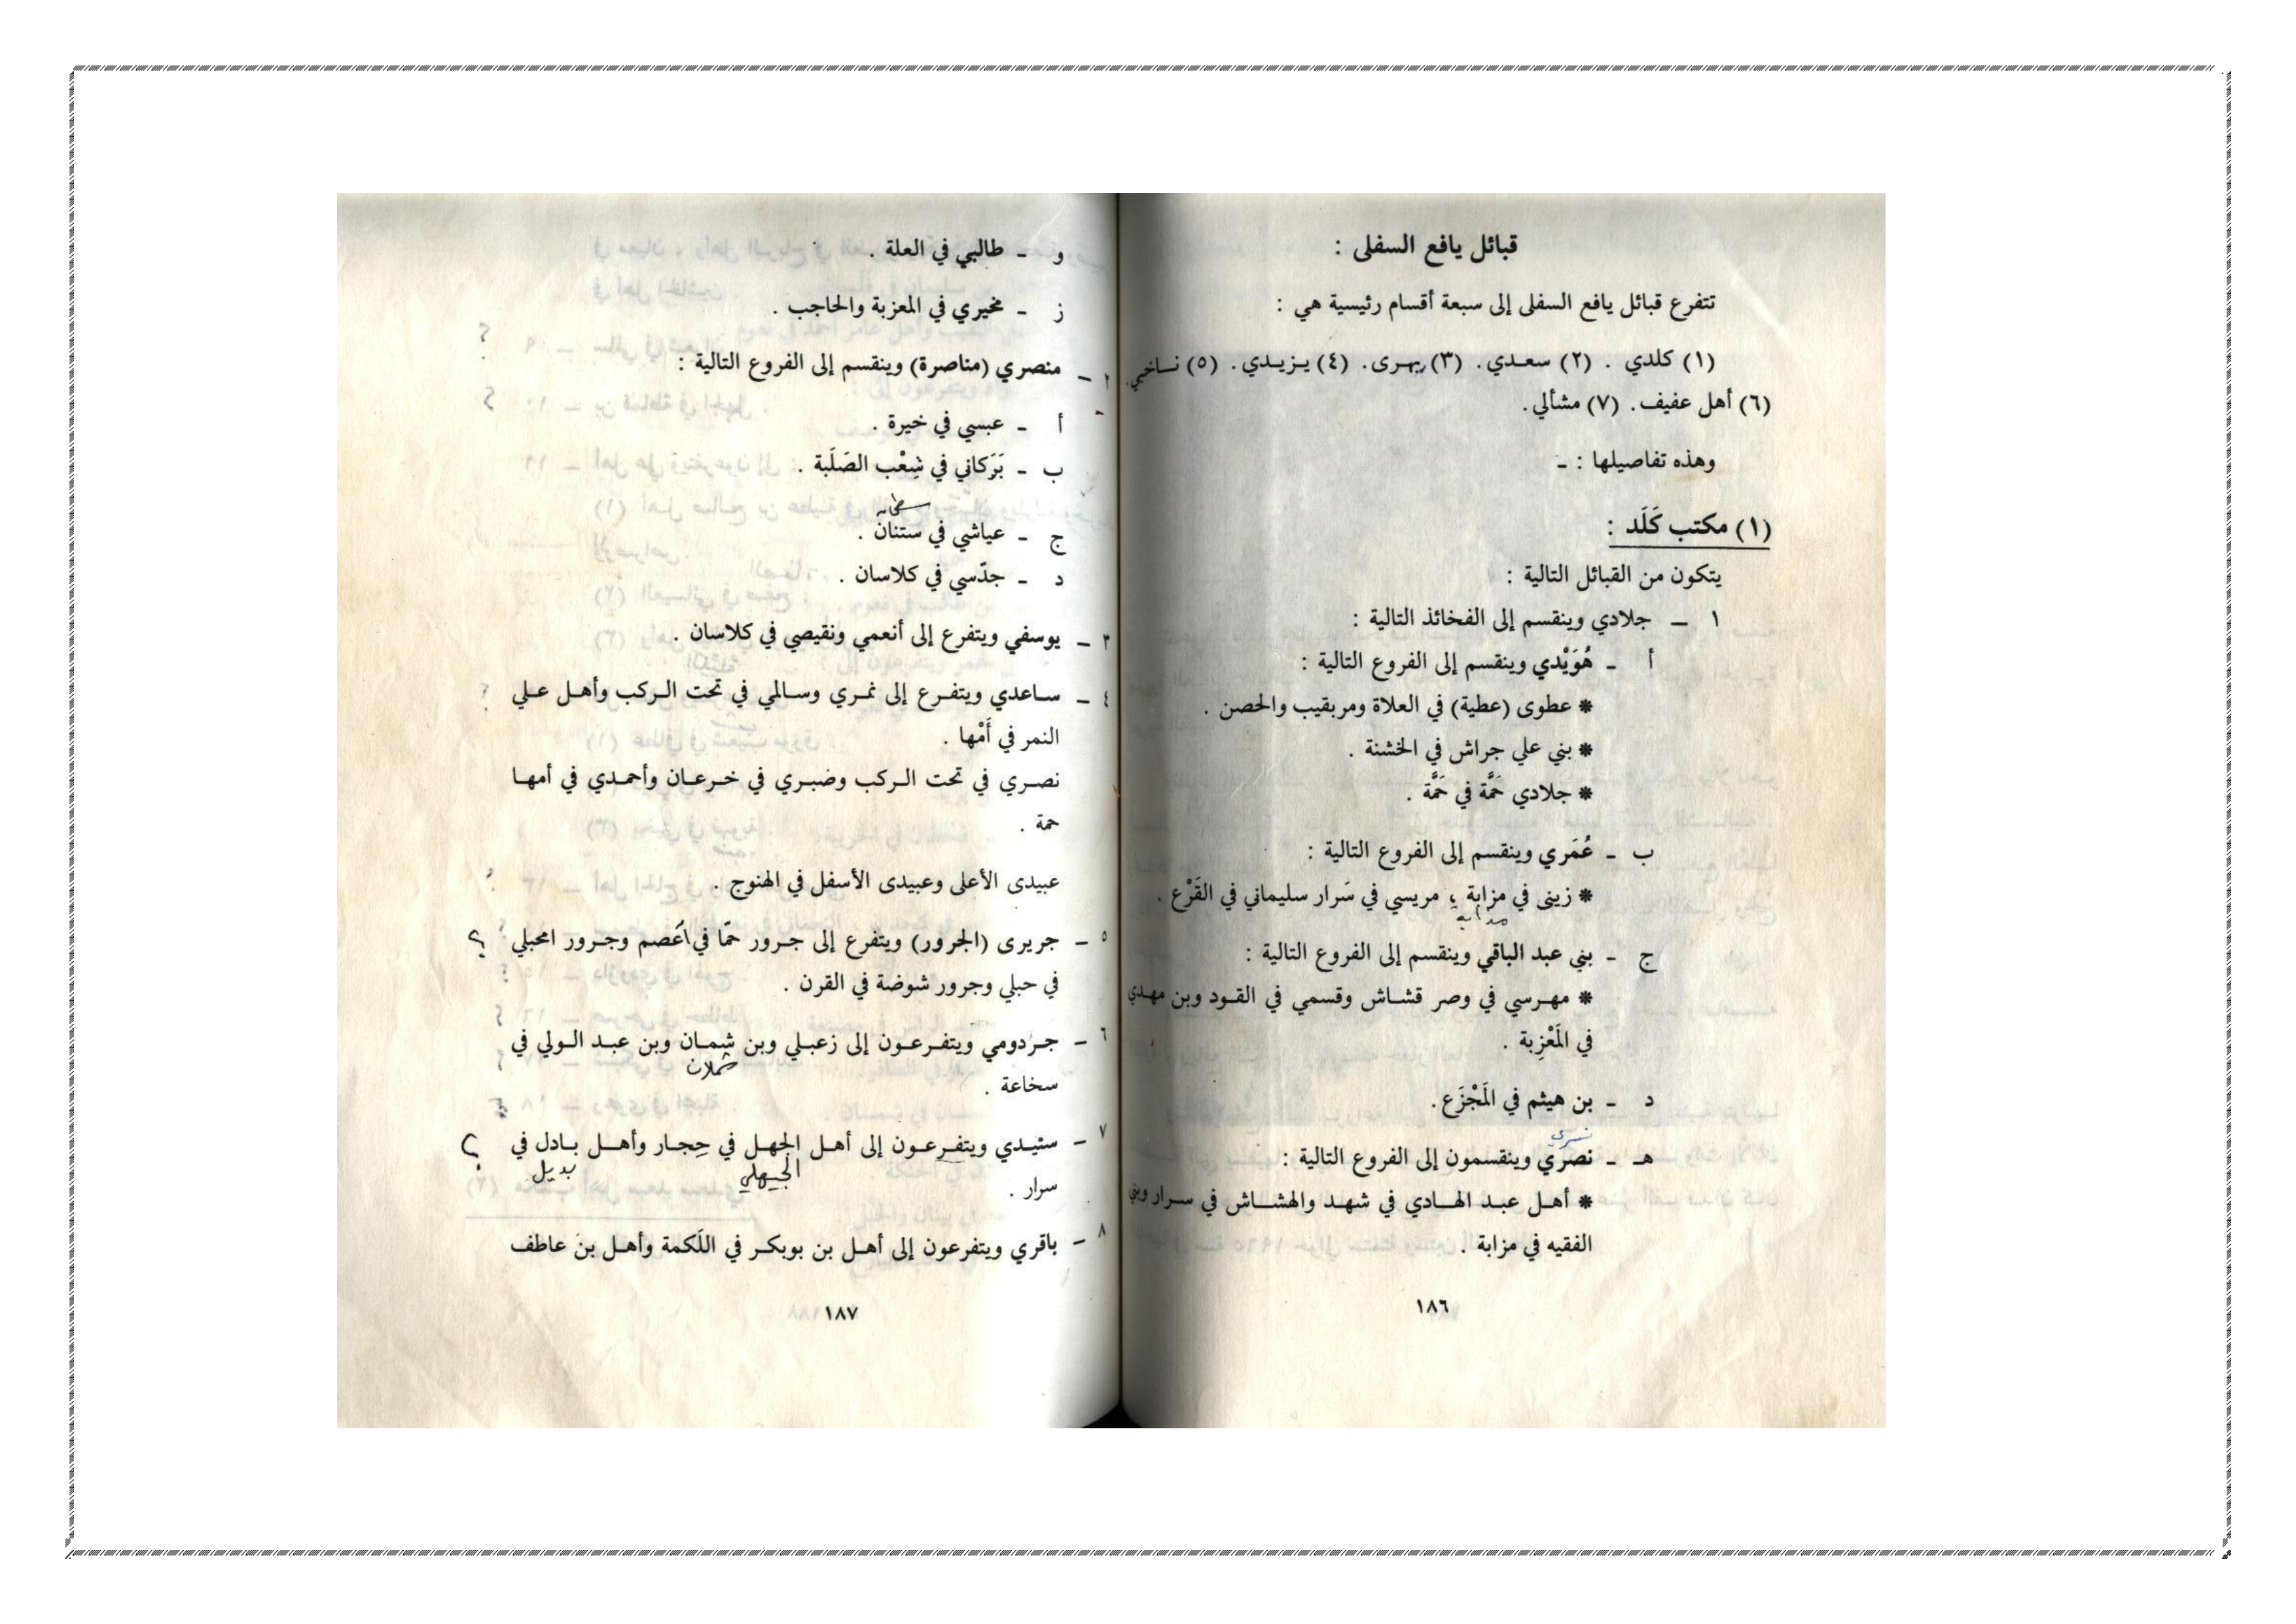 قبائل يافع السفلى :
تتفرع قبائل يافع السفلى إلى سبعة أقسام رئيسية هي :
(١) كلدي . (٢) سعـدي . (٣) يهـرى . (٤) يـزيـدي . (٥) نـاخبي .
(٦) أهل عفيف . (٧) مشألي .
وهذه تفاصيلها : ـ
(١) مكتب كَلَد :
يتكون من القبائل التالية :
١ ـ جلادي وينقسم إلى الفخائذ التالية :
أ ـ هُوَيْدي وينقسم إلى الفروع التالية :
* عطوى (عطية) في العلاة ومربقيب والحصن .
* بني علي جراش في الخشنة .
* جلادي حَمَّة في حَمَّة .
ب ـ عُمَري وينقسم إلى الفروع التالية :
* زينى في مزابة ، مريسي في سَرار سليماني في القَرْع .
ج ـ بني عبد الباقي وينقسم إلى الفروع التالية :
* مهـرسي في وصر قشـاش وقسمي في القـود وبن مهـدي
في المَعْزِبة .
د ـ بن هيثم في المَجْزَع .
هـ ـ نصري وينقسمون إلى الفروع التالية :
* أهـل عبـد الهـادي في شهـد والهشـاش في سـرار وبني
الفقيه في مزابة .
١٨٦
و ـ طالبي في العلة .
ز ـ مخيري في المعزبة والحاجب .
٢ ـ منصري (مناصرة) وينقسم إلى الفروع التالية :
أ ـ عبسي في خيرة .
ب ـ بَرَكاني في شِعْب الصَلَبة .
ج ـ عياشي في ستنان .
د ـ جدّسي في كلاسان .
٣ ـ يوسفي ويتفرع إلى أنعمي ونقيصي في كلاسان .
٤ ـ سـاعدي ويتفـرع إلى نمـري وسـالمي في تحت الـركب وأهـل عـلي
النمر في أَمْها .
نصـري في تحت الـركب وضبـري في خـرعـان وأحمـدي في أمهـا
حمة .
عبيدى الأعلى وعبيدى الأسفل في الهنوج .
٥ ـ جريرى (الجرور) ويتفرع إلى جـرور حمّا في أعصم وجـرور امحبلي ؟
في حبلي وجرور شوضة في القرن .
٦ ـ جـردومي ويتفـرعـون إلى زعبـلي وبن شمـان وبن عبـد الـولي في
شملان
سخاعة .
٧ ـ سنيـدي ويتفـرعـون إلى أهـل الجهـل في حِجـار وأهـل بـادل في ؟
الجيهلي بديل
سرار .
٨ ـ باقري ويتفرعون إلى أهـل بن بوبكـر في اللَكمة وأهـل بن عاطف
١٨٧